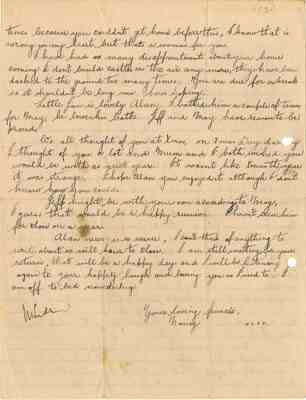 (3)
time because you couldn't get home before this, I know that is
wrong young heart, but that is worse for you
I have had so many disappointments about your home
coming I don't build castles in the air any more, they have been
dashed to the ground too many times. You are due for a break
so it shouldn't be long now I am hoping.
Little Jan is lovely Alan, I bathed him a couple of times
for May, he loves his bath. Jeff and May have reason to be
proud.
We all thought of you at home on Xmas Day
I thought of you a lot and Mum and I both wished you
would be with us next year. It wasn't like
it was strange. I hope Alan you enjoyed it although I don't
know how you could.
Jeff might be with you soon according to May,
I guess that would be a happy reunion. I haven't seen him
for close on a year.
Alan I can't think of anything to
so will have to close. I am still waiting for your
return, that will be a happy day and I will be listening
again to your happy laugh and having you so hard to I
am off to bed now
Your loving fiancée,
Nancy xxxx